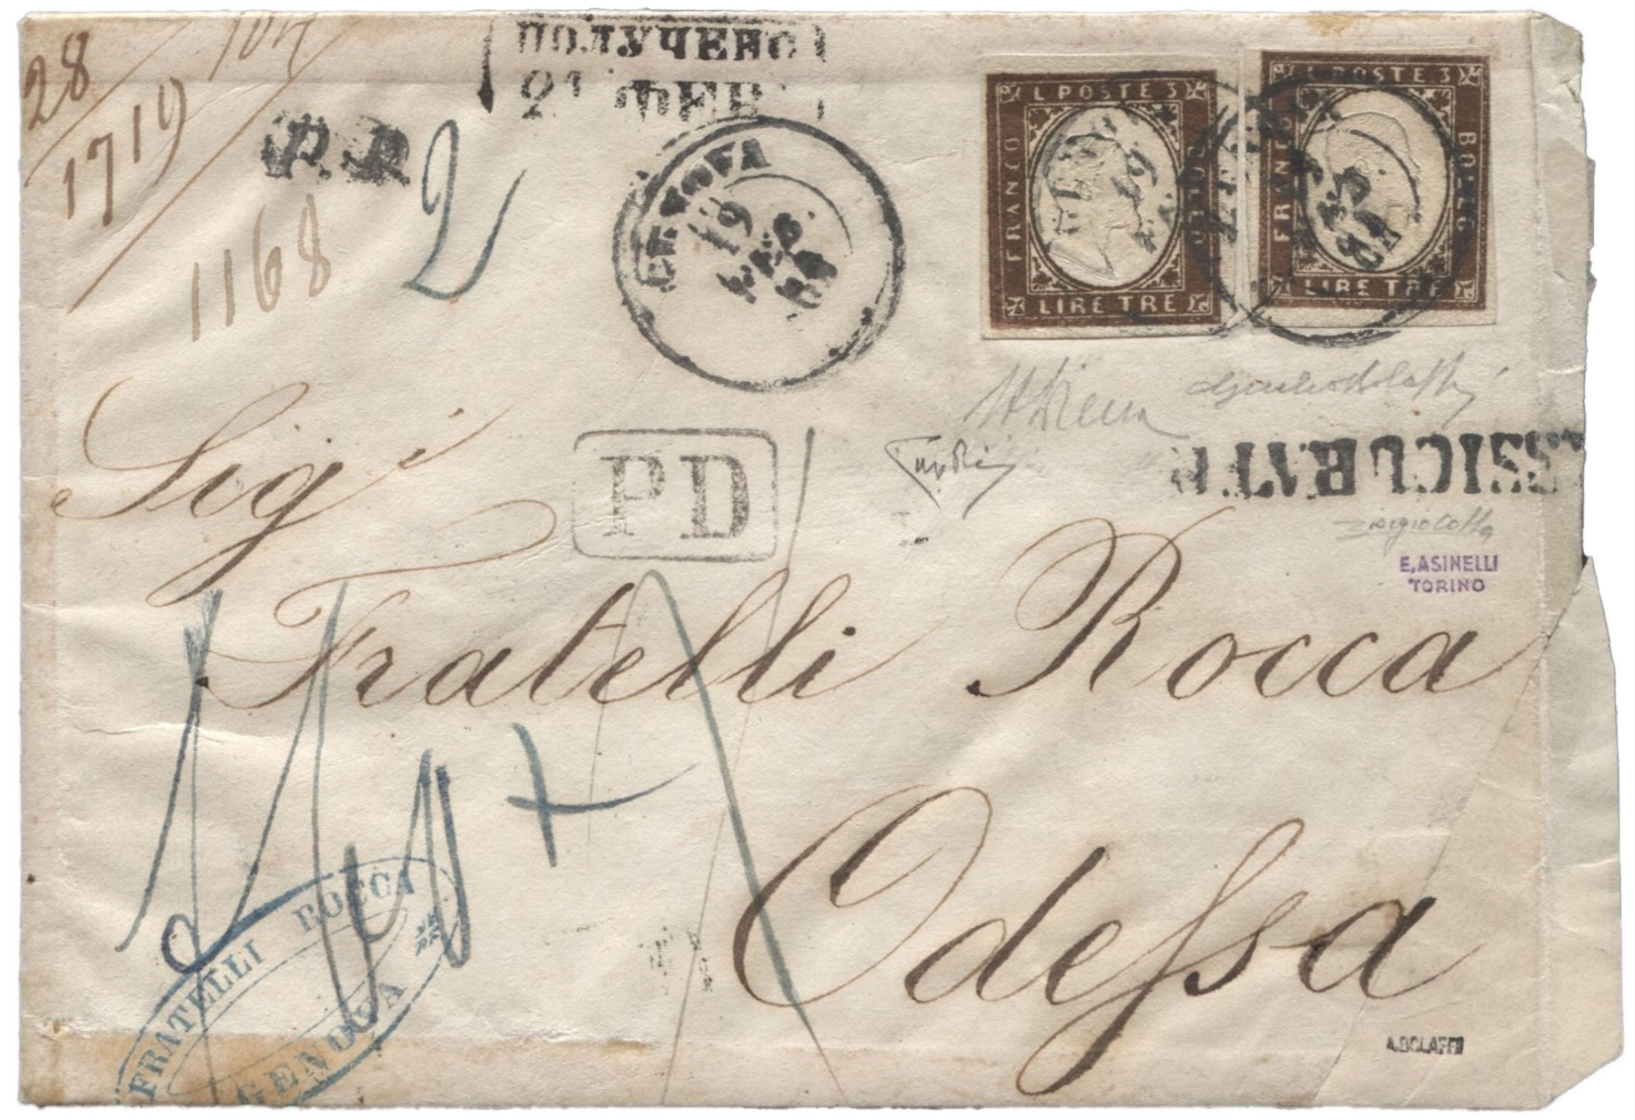 28
1719
1168
P.P.
2
ПОЛУЧЕНО
21 ФЕВ
GENOVA
19
FRANCO
C. POSTE 3
BOLLO
LIRE TRE
FRANCO
C. POSTE 3
BOLLO
LIRE TRE
PD
ASSICURATE
E. ASINELLI
TORINO
Sigⁱ
Fratelli Rocca
Odessa
FRATELLI ROCCA
GENOVA
A. BOLAFFI